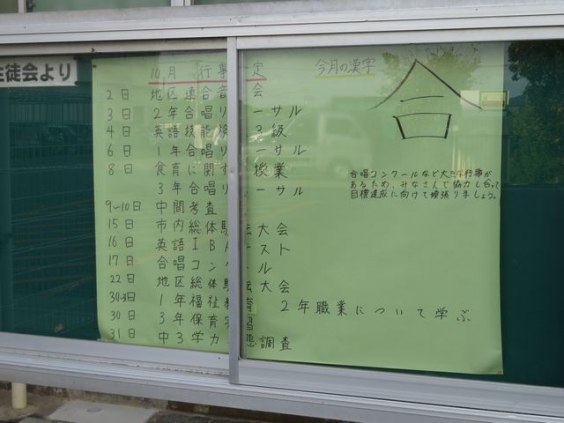 生徒会より
10月 行事 定
今月の漢字
合
2日 地区連合音 会
3日 2年合唱リ ーサル
4日 英語技能検 3級
6日 1年合唱リ ーサル
8日 食育に関す 授業
3年合唱リ ーサル
9〜10日 中間考査
15日 市内総体駅伝大会
16日 英語IBAテスト
17日 合唱コン ール
22日 地区総体駅伝大会
1年福祉
30日 3年保育
2年職業について学ぶ
31日 中3学力 調査
合唱コンクールなど大きな行事が
あるため、みなさんで協力し合って
目標達成に向けて頑張りましょう。